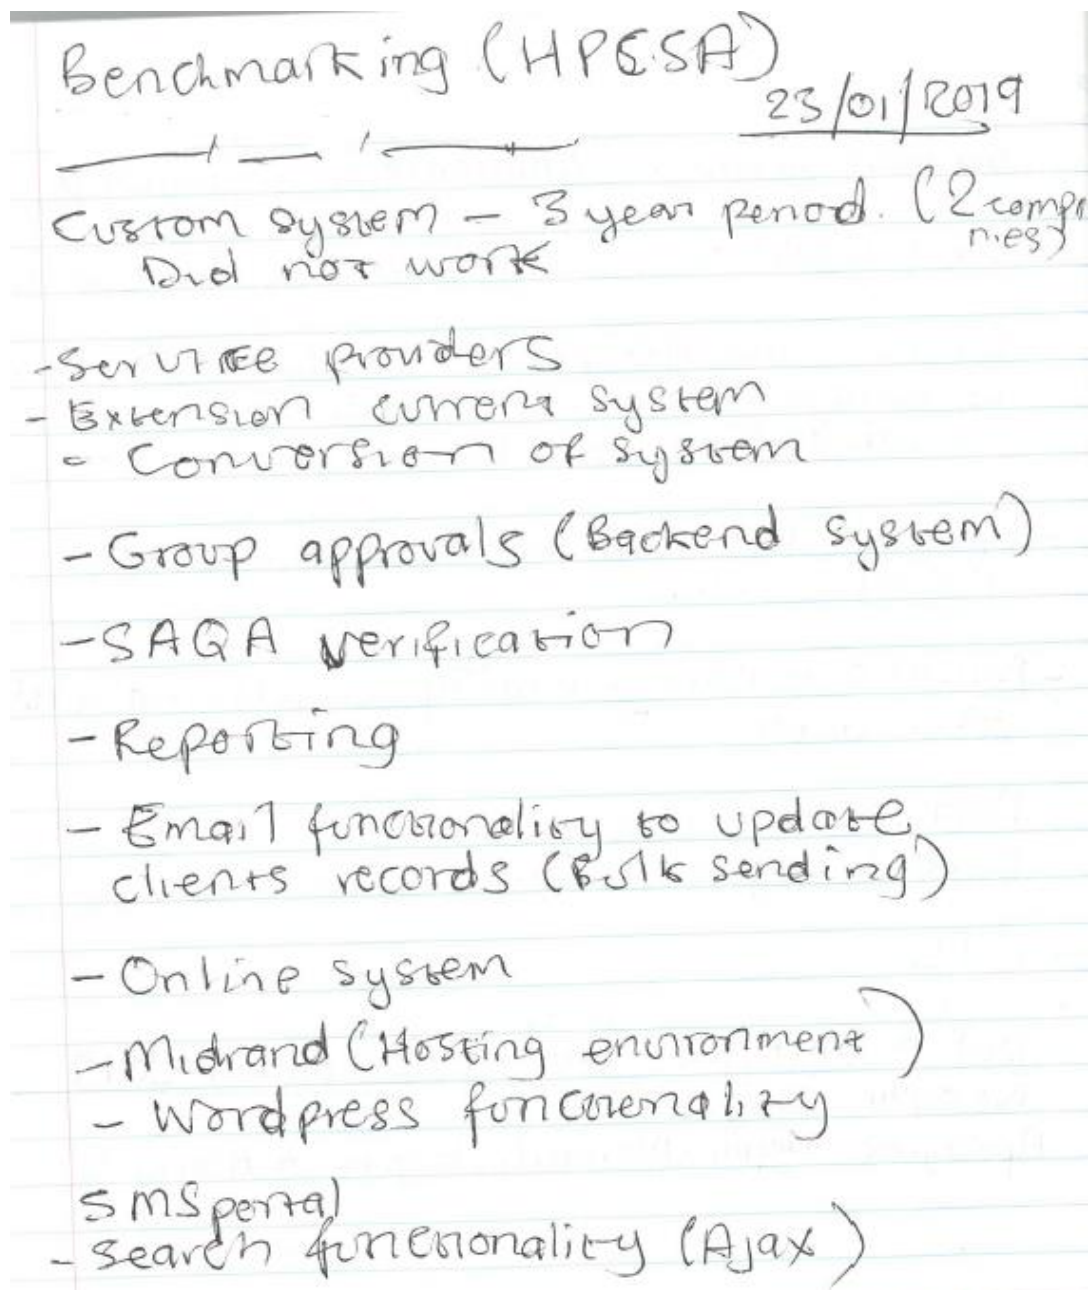 Benchmarking (HPCSA)
23/01/2019
Custom system - 3 year period. (2 compa
nies)
Did not work
- Service providers
- Extension current system
- Conversion of system
- Group approvals (Backend system)
- SAQA verification
- Reporting
- Email functionality to update
clients records (Bulk sending)
- Online system
- Midrand (Hosting environment)
- Wordpress functionality
SMS portal
- Search functionality (Ajax)